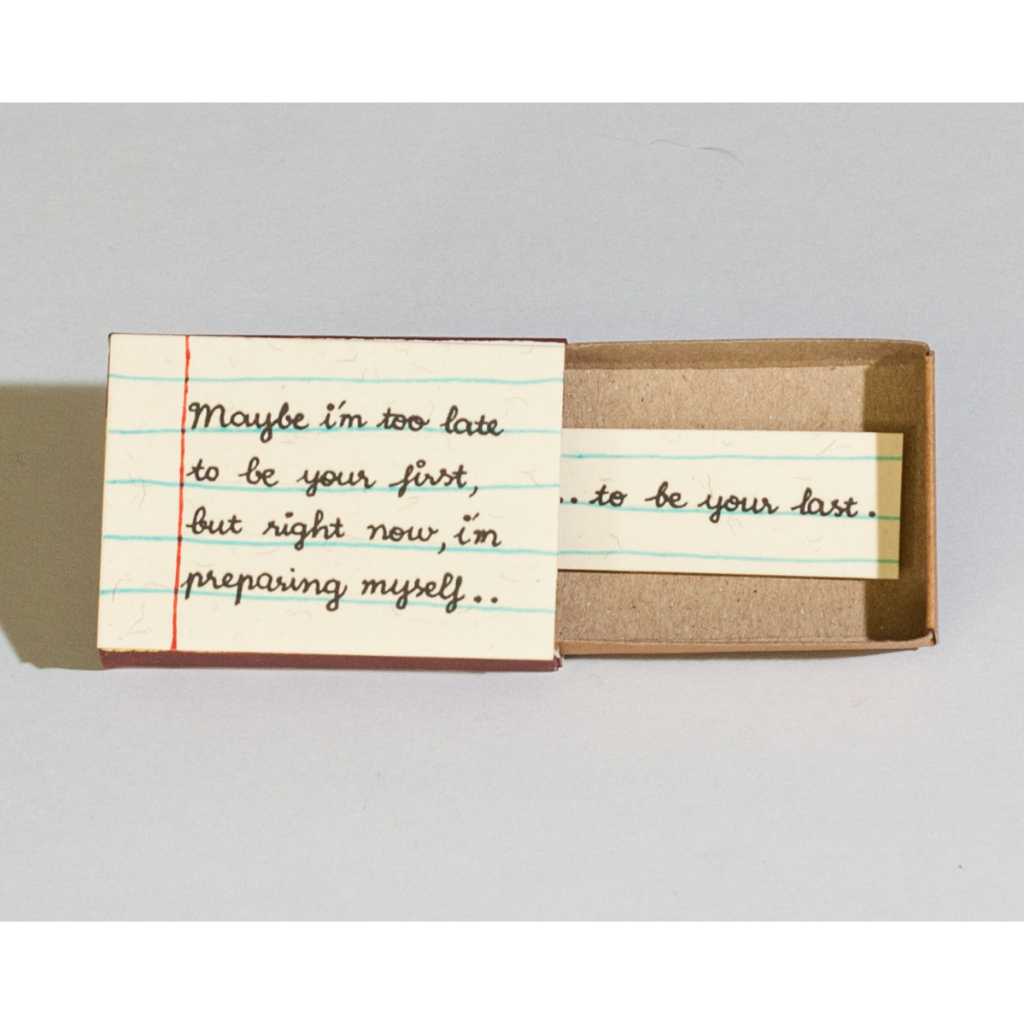 Maybe i'm too late
to be your first,
but right now, i'm
preparing myself..
.. to be your last.